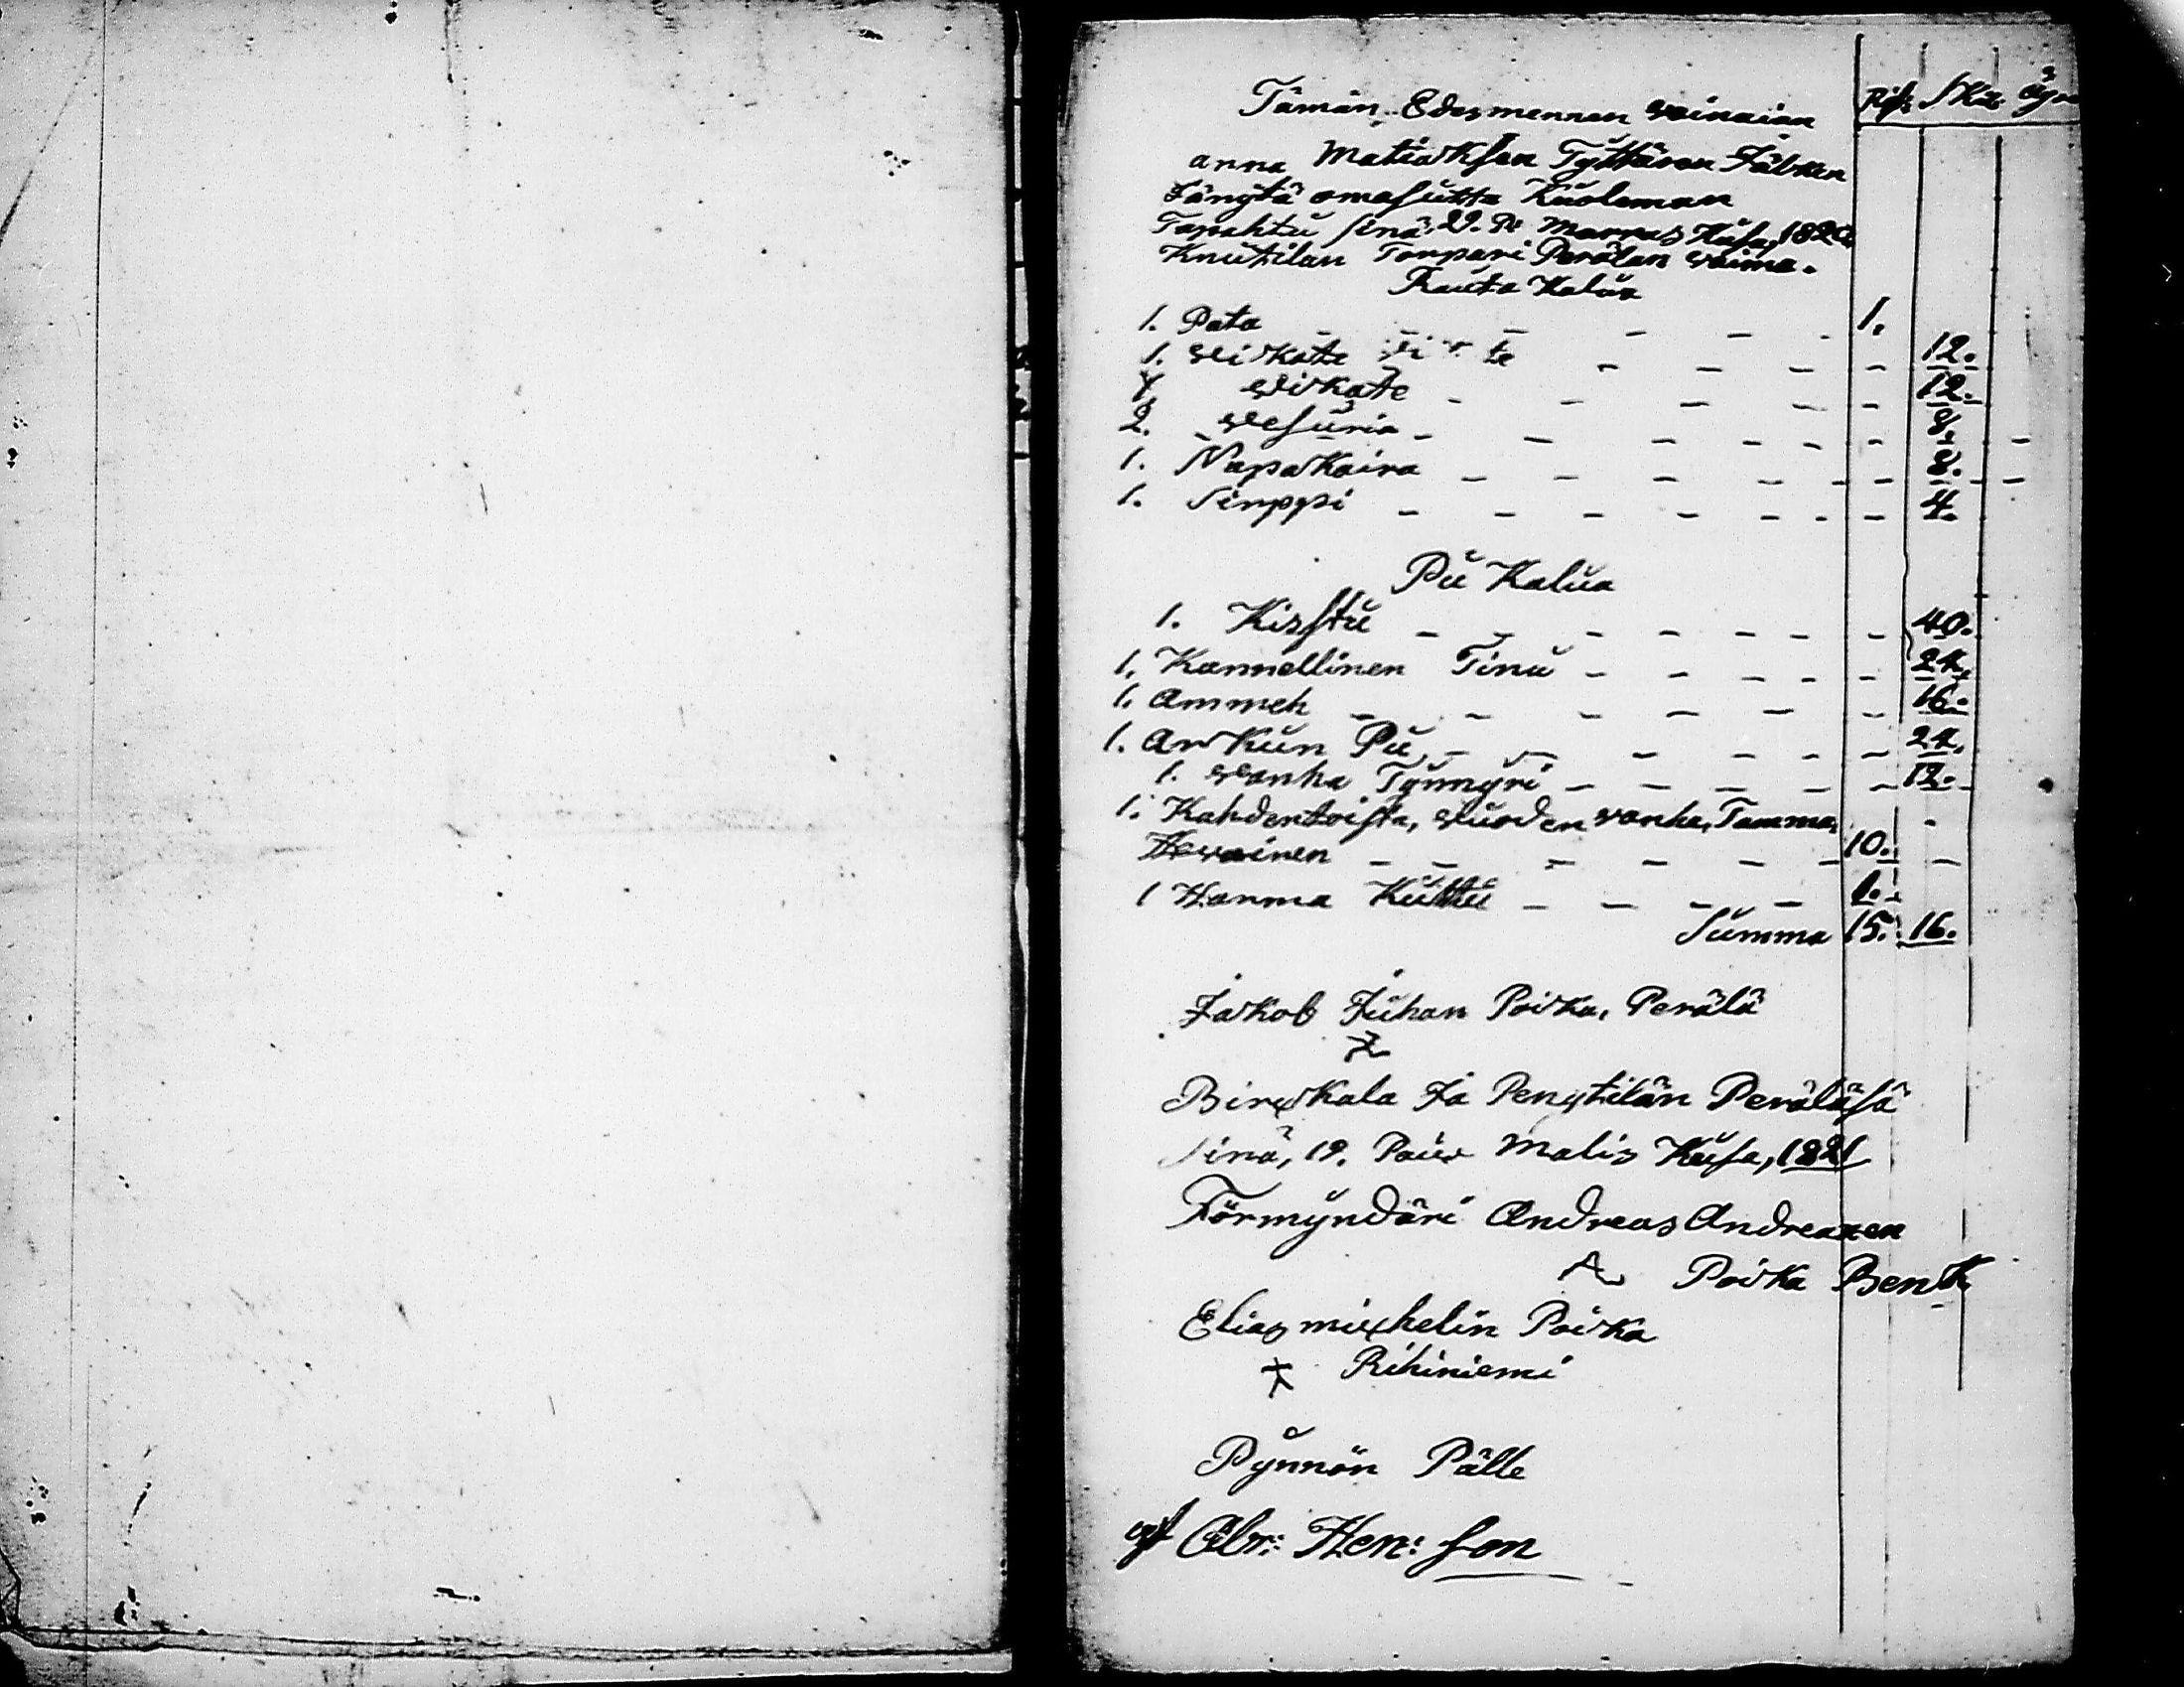 Rif: Skil: öy
Tämän, Edesmennen wainaian
anna Matiaksen Tyttären Jälken
Jänytä omasutta Kuoleman
Tapahtu sinä 22. Pi Marras Kusa, 1820
Knutilan Torpari Perälan waimo.
Rauta Kalua
1. Pata - - - - 1.
1. wikate - - - - 12.
1 wikate - - - - 12.
2. wesuria - - - - 8.
1. Napakaira - - - - 8.
1. Sirppi - - - - 4.
Pu Kalua
1. Kisstu - - - - 40.
1. Kannellinen Tinu - - - - 24.
1. Ammeh - - - - 16.
1. Arkun Pu - - - - 24.
1. wanha Tynnyri - - - - 12.
1. Kahdentoista, wuoden wanha, Tamma,
Hewoinen - - - - 10. -
1 Hanma Kuttu - - - - 1.
Summa 15. 16.
Jakob Juhan Poika, Perälä
Birckala Ja Penttilän Peräläsä
Sinä, 19. Paiw Malis Kusa, 1821
Förmyndäri Andreas Andreaxen
Poika Bentt
Elias michelin Poika
Rihiniemi
Pynnön Pälle
Abr: Hen: son